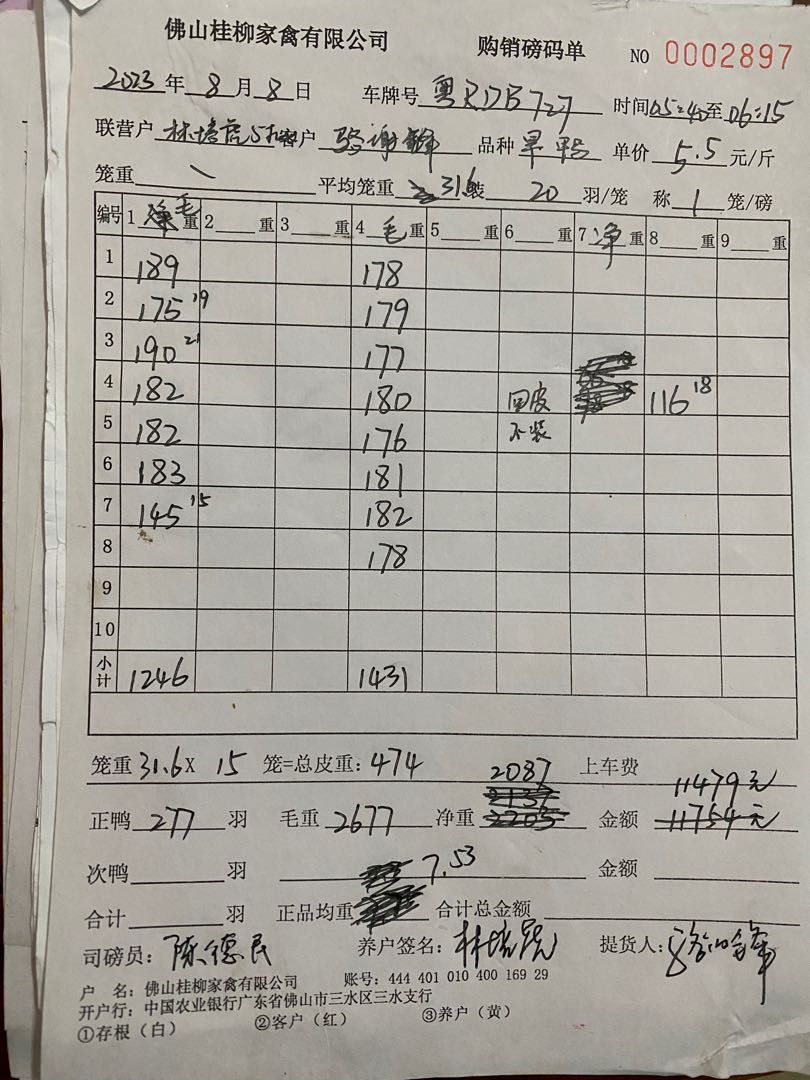 佛山桂柳家禽有限公司 购销磅码单 NO 0002897
2023年8月8日 车牌号 粤 727 时间05:40至06:15
联营户 林培 户 谢锋 品种 旱鸭 单价 5.5 元/斤
笼重 平均笼重 31.6 装 20 羽/笼 称 1 笼/磅
编号 1 毛 重 2 重 3 重 4 毛 重 5 重 6 重 7 净 重 8 重 9 重
1 189 178
2 175 19 179
3 190 21 177
4 182 180 回皮 116 18
5 182 176 不装
6 183 181
7 145 15 182
8 178
9
10
小计 1246 1431
笼重 31.6 X 15 笼=总皮重: 474 2087 上车费 11479元
正鸭 277 羽 毛重 2677 净重 2137 2203 金额 11754元
次鸭 羽 7.53 金额
合计 羽 正品均重 合计总金额
司磅员: 陈德民 养户签名: 林培 提货人: 锋
户 名: 佛山桂柳家禽有限公司 账号: 444 401 010 400 169 29
开户行: 中国农业银行广东省佛山市三水区三水支行
①存根（白） ②客户（红） ③养户（黄）